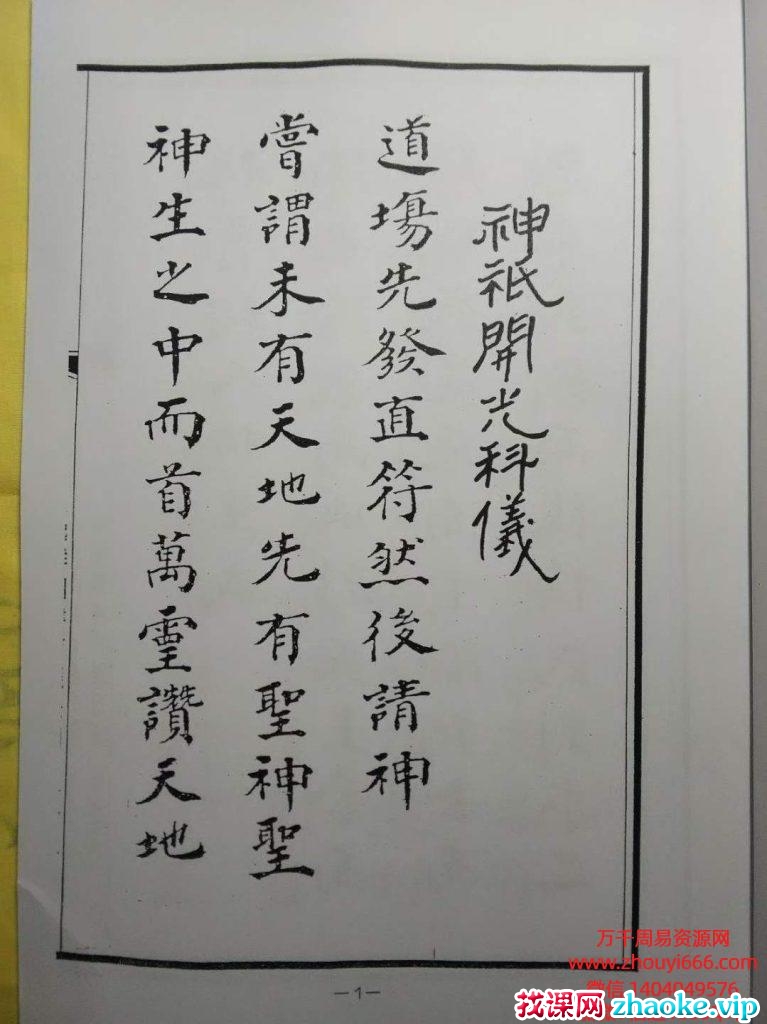 神祇開光科儀
道場先發直符然後請神
嘗謂未有天地先有聖神聖
神生之中而首萬靈讚天地
—1—
万千周易资源网
www.zhouyi666.com
微信 1404049576
找课网 zhaoke.vip